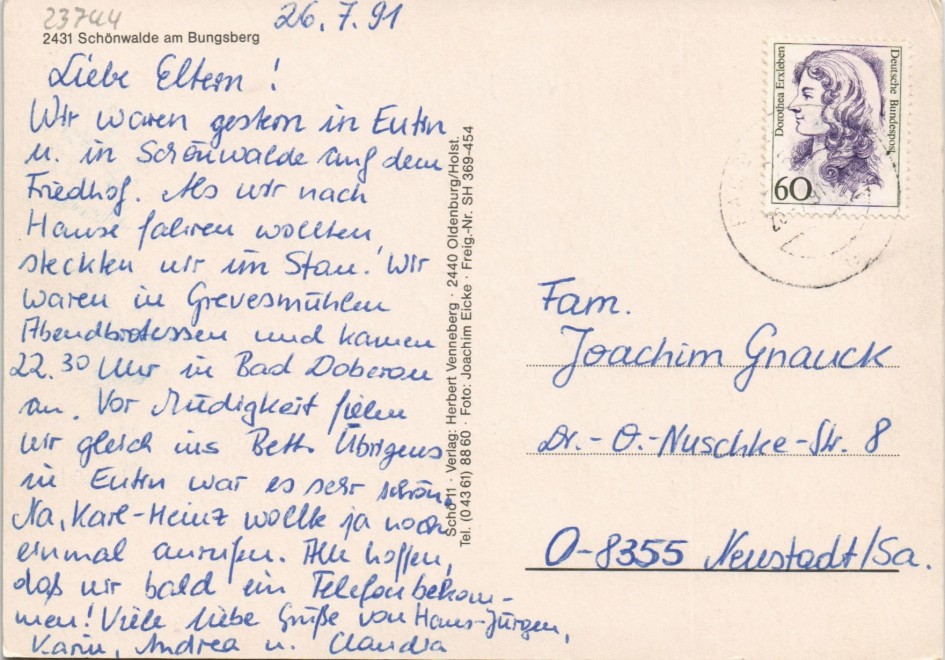 23744
26.7.91
2431 Schönwalde am Bungsberg
Liebe Eltern!
Wir waren gestern in Eutin
u. in Schönwalde auf dem
Friedhof. Als wir nach
Hause fahren wollten,
steckten wir im Stau! Wir
waren in Grevesmühlen
Abendbrotessen und kamen
22.30 Uhr in Bad Doberan
an. Vor Müdigkeit fielen
wir gleich ins Bett. Übrigens
in Eutin war es sehr schön.
Na, Karl-Heinz wollte ja noch
einmal anrufen. Alle hoffen,
daß wir bald ein Telefon bekom-
men! Viele liebe Grüße von Hans-Jürgen,
Karin, Andrea u. Claudia
Schö 11 · Verlag: Herbert Venneberg · 2440 Oldenburg/Holst.
Tel. (0 43 61) 88 60 · Foto: Joachim Eicke · Freig.-Nr. SH 369-454
Dorothea Erxleben
Deutsche Bundespost
60
Fam.
Joachim Gnauck
Dr.-O.-Nuschke-Str. 8
O-8355 Neustadt/Sa.